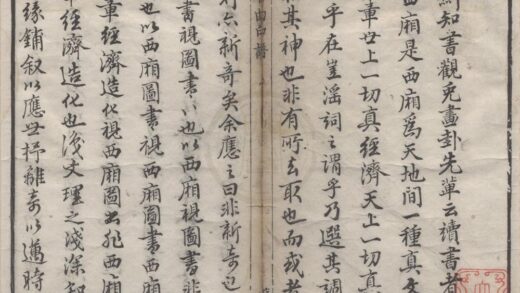 知書觀兔畫卦先軰云讀書者
西廂是西廂爲天地間一種真文
章世上一切真經濟天上一切真
乎在崖滛詞之謂乎乃選其調
其神也非有所去取也而或者
曲譜
亦新奇矣余應之曰非新奇也
書視圖書〻也以西廂視圖書非
也以西廂圖書視西廂圖書西廂
章經濟造化視西廂圖書非西廂
經濟造化也淺文理之淺深知
緣鋪叙以應世抒離奇以邁時